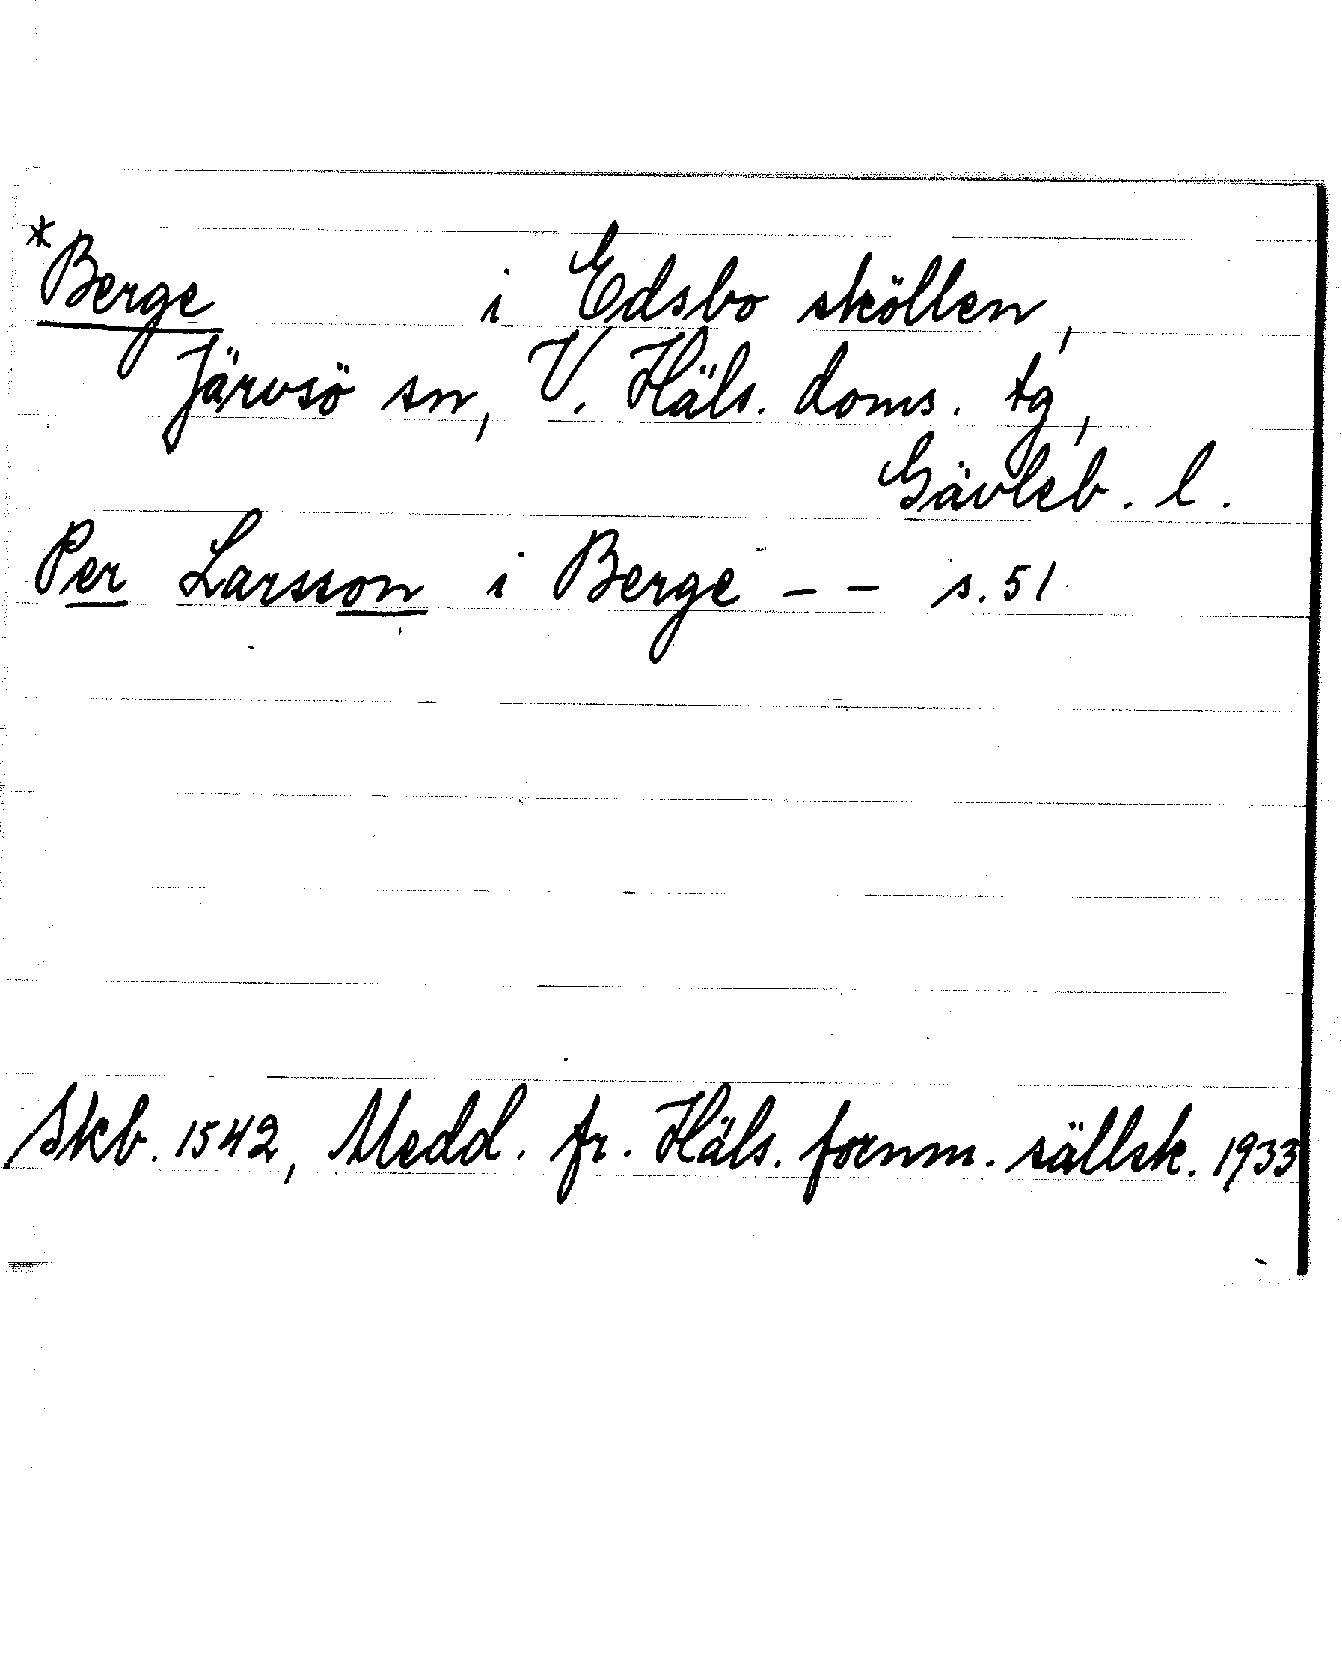 *Berge i Edsbo sköllen,
Järvsö sn, V. Häls. doms. tg,
Gävleb. l.
Per Larsson i Berge - - s. 51
Skb. 1542, Medd. fr. Häls. fornm. sällsk. 1933